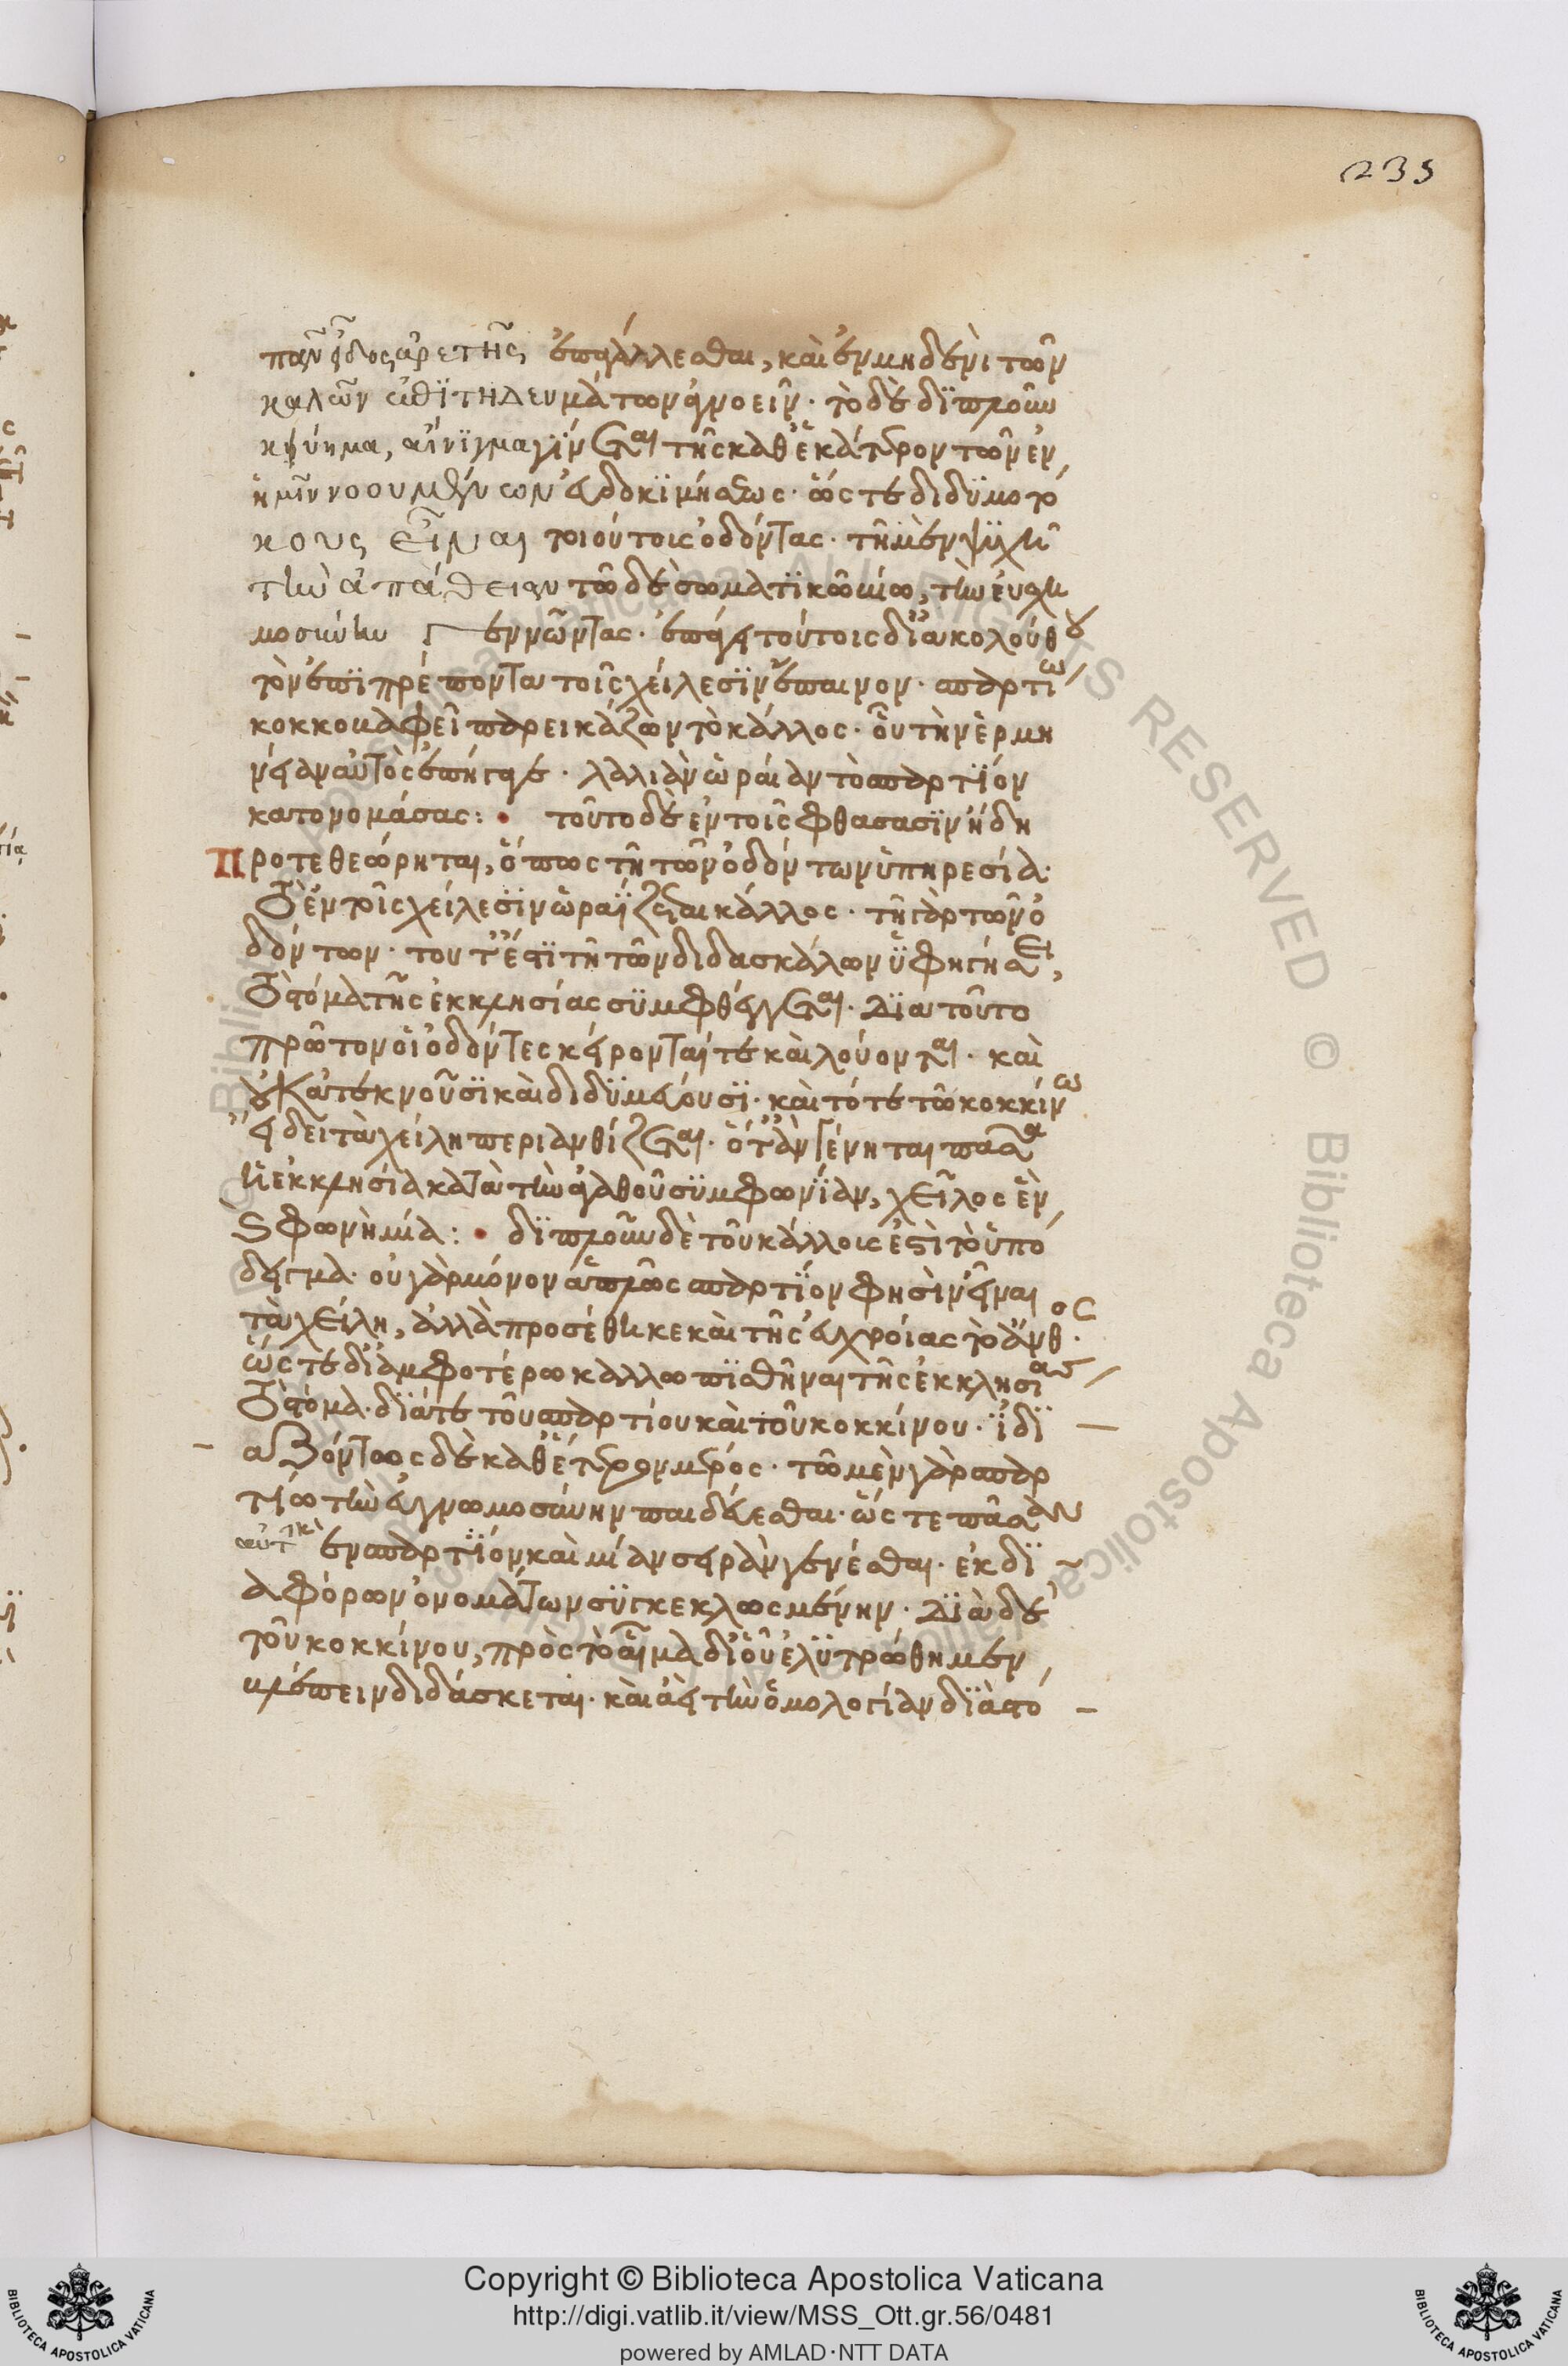 239
πᾶν εἶδος ἀρετῆς ἐπαγγέλλεσθαι, καὶ ἐν μηδενὶ τῶν
καλῶν ἐπιτηδευμάτων ἀγονεῖν· τὸ δὲ διπλοῦν
κύημα, αἴνιγμα γίνεται τῆς καθ' ἑκάτερον τῶν ἐν
ἡμῖν νοουμένων εὐδοκιμήσεως· ὥς τε διδυμοτό
κους εἶναι τοιούτοις ὀδόντας· τῇ μὲν ψυχῇ
τὴν ἀπάθειαν τῷ δὲ σωματικῷ βίῳ, τὴν εὐσχη
μοσύνην γεννῶντας· ἐπάγει τούτοις δι' ἀκολούθου
τὸν ἐπιπρέποντα τοῖς χείλεσιν ἔπαινον· σπαρτίῳ
κοκκοβαφεῖ παρεικάζων τὸ κάλλος· οὗ τὴν ἑρμη
νείαν αὐτὸς ἐπήγαγε· λαλιὰν ὡραίαν τὸ σπαρτίον
κατονομάσας: τοῦτο δὲ ἐν τοῖς φθάσασιν ἤδη
προτεθεώρηται, ὅπως τῇ τῶν ὀδόντων ὑπηρεσίᾳ·
τὸ ἐν τοῖς χείλεσιν ὡραΐζεται κάλλος· τῆς γὰρ τῶν ὀ
δόντων· τουτέστι τῇ τῶν διδασκάλων ὑφηγήσει,
τὸ στόμα τῆς ἐκκλησίας συμφθέγγεται· διὰ τοῦτο
πρῶτον οἱ ὀδόντες κείρονταί τε καὶ λούονται· καὶ
οὐκ ἀτεκνοῦσι καὶ διδυμεύουσι· καὶ τότε τῷ κοκκίνῳ
εἴδει τὰ χείλη περιανθίζεται· ὅτ' ἂν γένηται πᾶσα
ἡ ἐκκλησία κατὰ τὴν ἀγαθοῦ συμφωνίαν, χεῖλος ἓν
καὶ φωνὴ μία: διπλοῦν δὲ τοῦ κάλλους ἐστὶ τὸ ὑπό
δειγμα· οὐ γὰρ μόνον ἁπλῶς σπαρτίον φησὶν εἶναι
τὰ χείλη, ἀλλὰ προσέθηκε καὶ τῆς εὐχροίας τὸ ἄνθος·
ὥς τε δι' ἀμφοτέρω καλλωπισθῆναι τῆς ἐκκλησίας
τὸ στόμα· διά τε τοῦ σπαρτίου καὶ τοῦ κοκκίνου· ἰδι
αζόντως δὲ καθ' ἕτερον μέρος· τῷ μὲν γὰρ σπαρ
τίῳ τὴν εὐγνωμοσύνην παιδεύεσθαι· ὥς τε πᾶσαν
αὐτὴν ἓν σπαρτίον καὶ μίαν σειρὰν γενέσθαι· ἐκ δι
αφόρων ὀνομάτων συγκεκλωσμένην· διὰ δὲ
τοῦ κοκκίνου, πρὸς τὸ αἷμα δι' οὗ ἐλυτρώθημεν,
βλέπειν διδάσκεται· καὶ ἀεὶ τὴν ὁμολογίαν διὰ στό
Copyright © Biblioteca Apostolica Vaticana
http://digi.vatlib.it/view/MSS_Ott.gr.56/0481
powered by AMLAD·NTT DATA